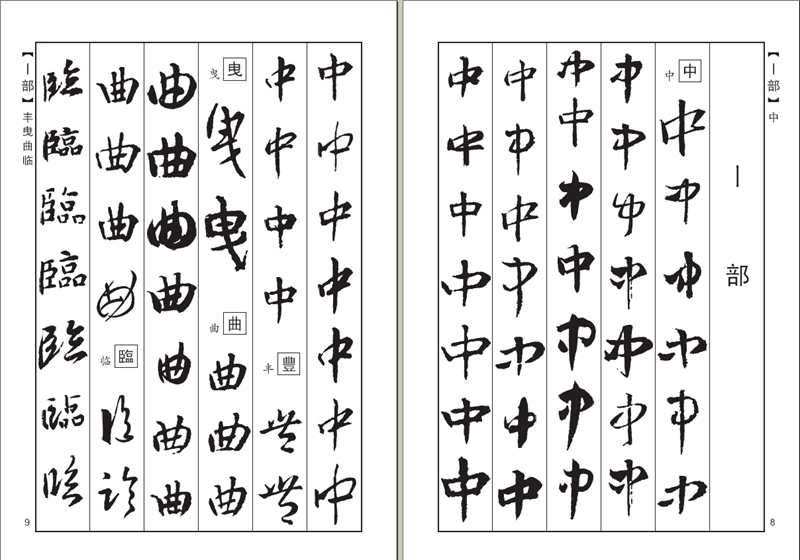 【丨部】中
丨部
中 中
中中中中中中
中中中中中中中
中中中中中中中
中中中中中中中
中中中中中中中
8
中中中中中中中
中中中中
豐 丰
豐豐
曳 曳
曳曳
曲 曲
曲曲曲
曲曲曲曲曲曲曲
曲曲曲曲
臨 临
臨臨
臨臨臨臨臨臨臨
【丨部】丰曳曲临
9